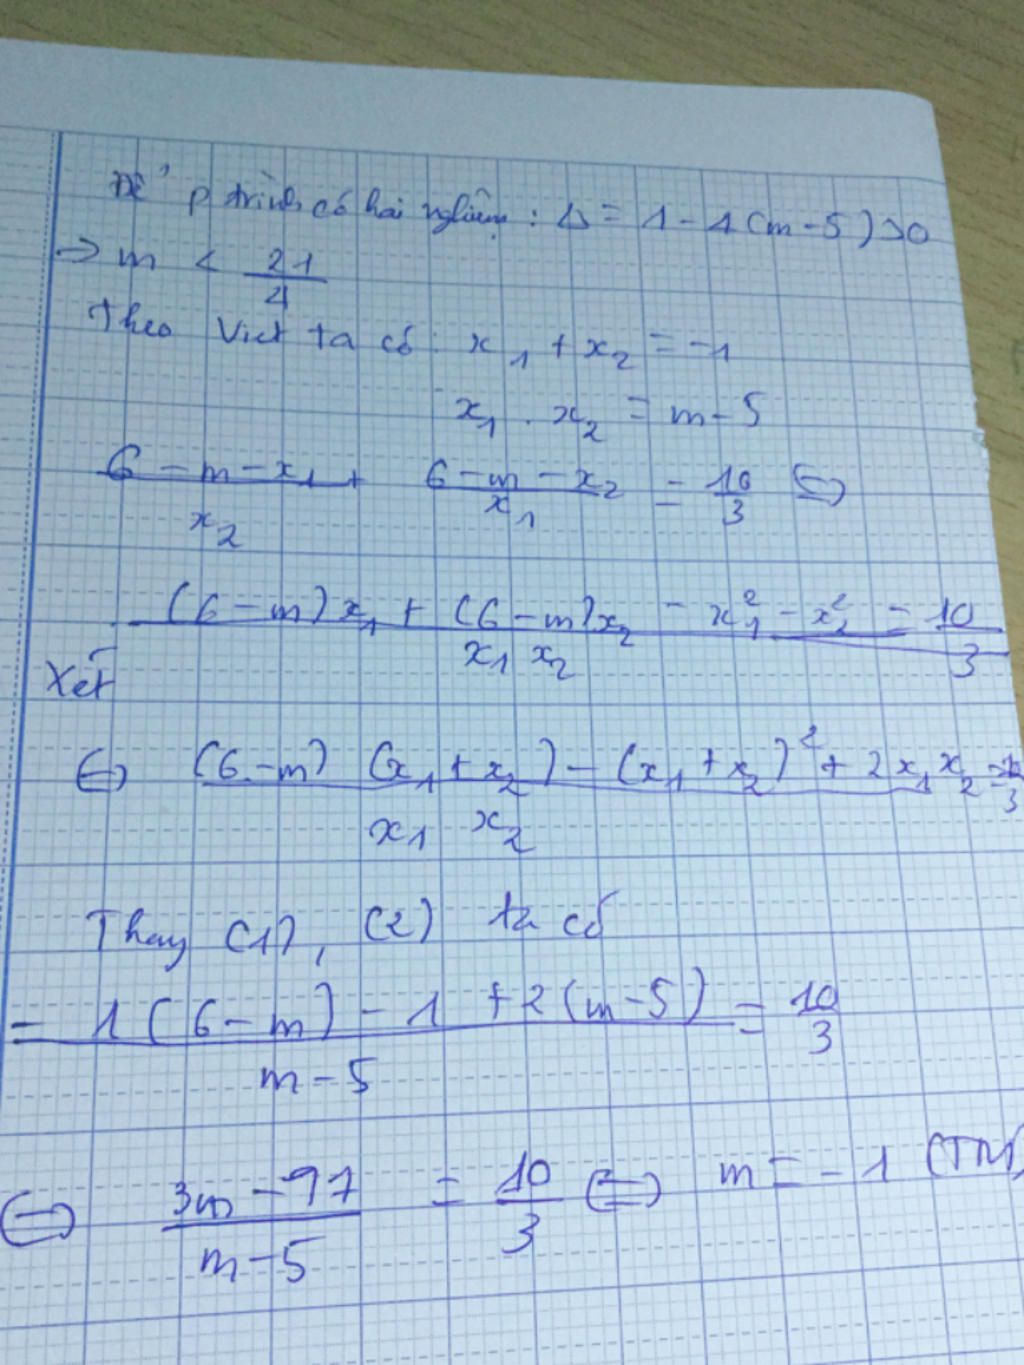 Để p trình có hai nghiệm : Δ = 1 - 4(m-5) > 0
=> m < 21/4
Theo Viet ta có : x₁ + x₂ = -1
x₁ . x₂ = m - 5
(6 - m - x₁)/x₂ + (6 - m - x₂)/x₁ = 10/3 <=>
((6 - m)x₁ + (6 - m)x₂ - x₁² - x₂²)/(x₁ x₂) = 10/3
Xét
<=> ((6 - m) (x₁ + x₂) - (x₁ + x₂)² + 2x₁ x₂)/(x₁ x₂) = 10/3
Thay (1), (2) ta có
= (1(6 - m) - 1 + 2(m-5))/(m - 5) = 10/3
<=> (3m - 97)/(m - 5) = 10/3 <=> m = -1 (TM)